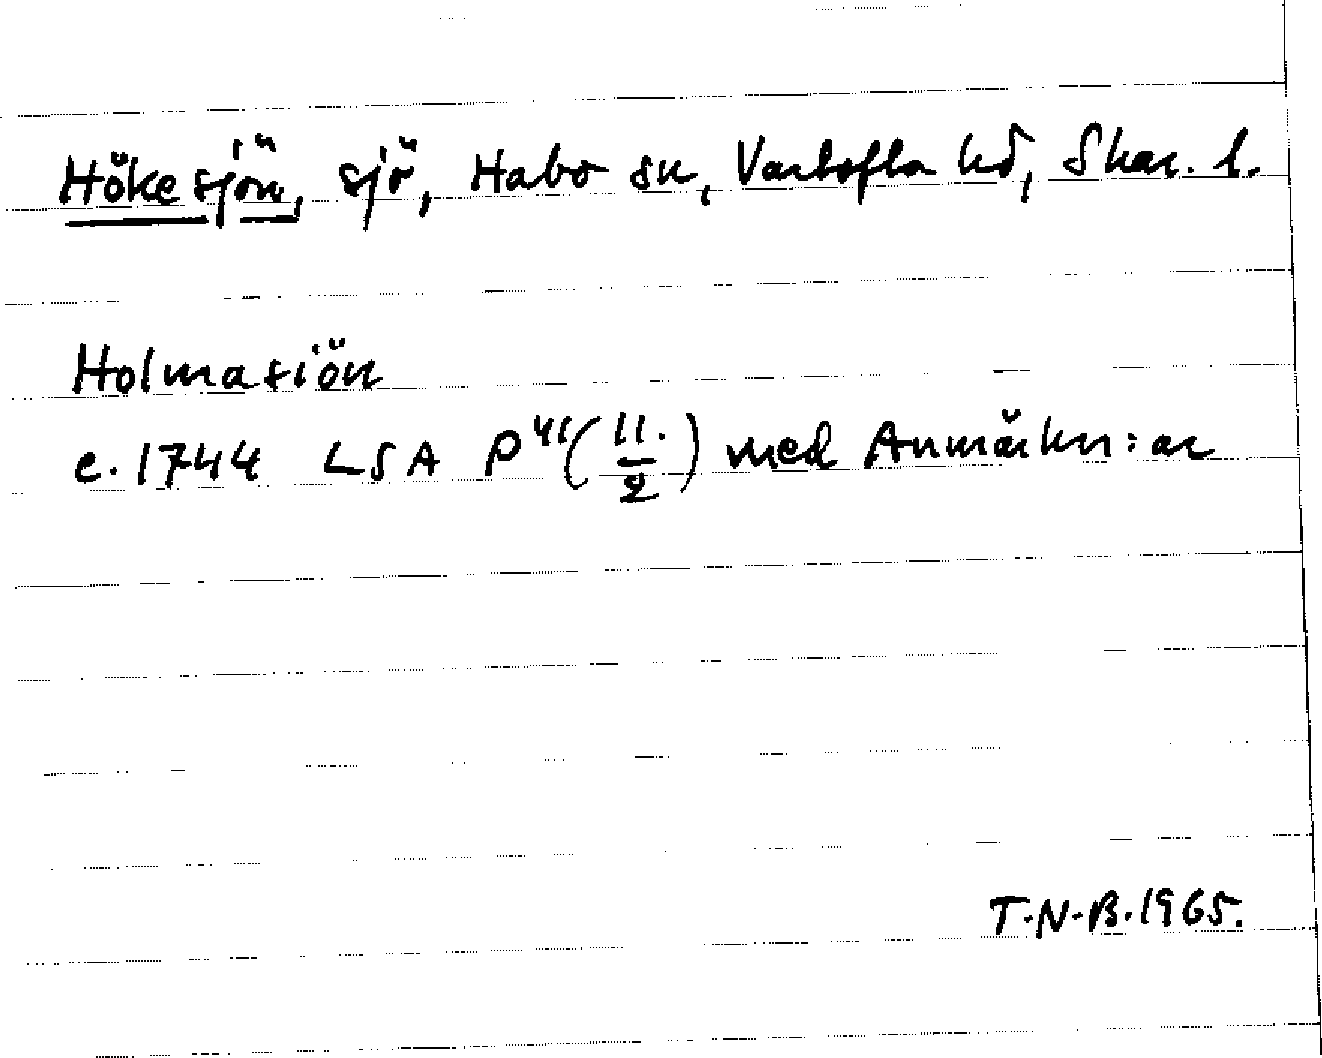 Hökesjön, sjö, Habo sn, Vartofta hd, Skar. l.
Holmasiön
c. 1744 LSA P41(11./2) med Anmärkn:ar
T.N.B. 1965.